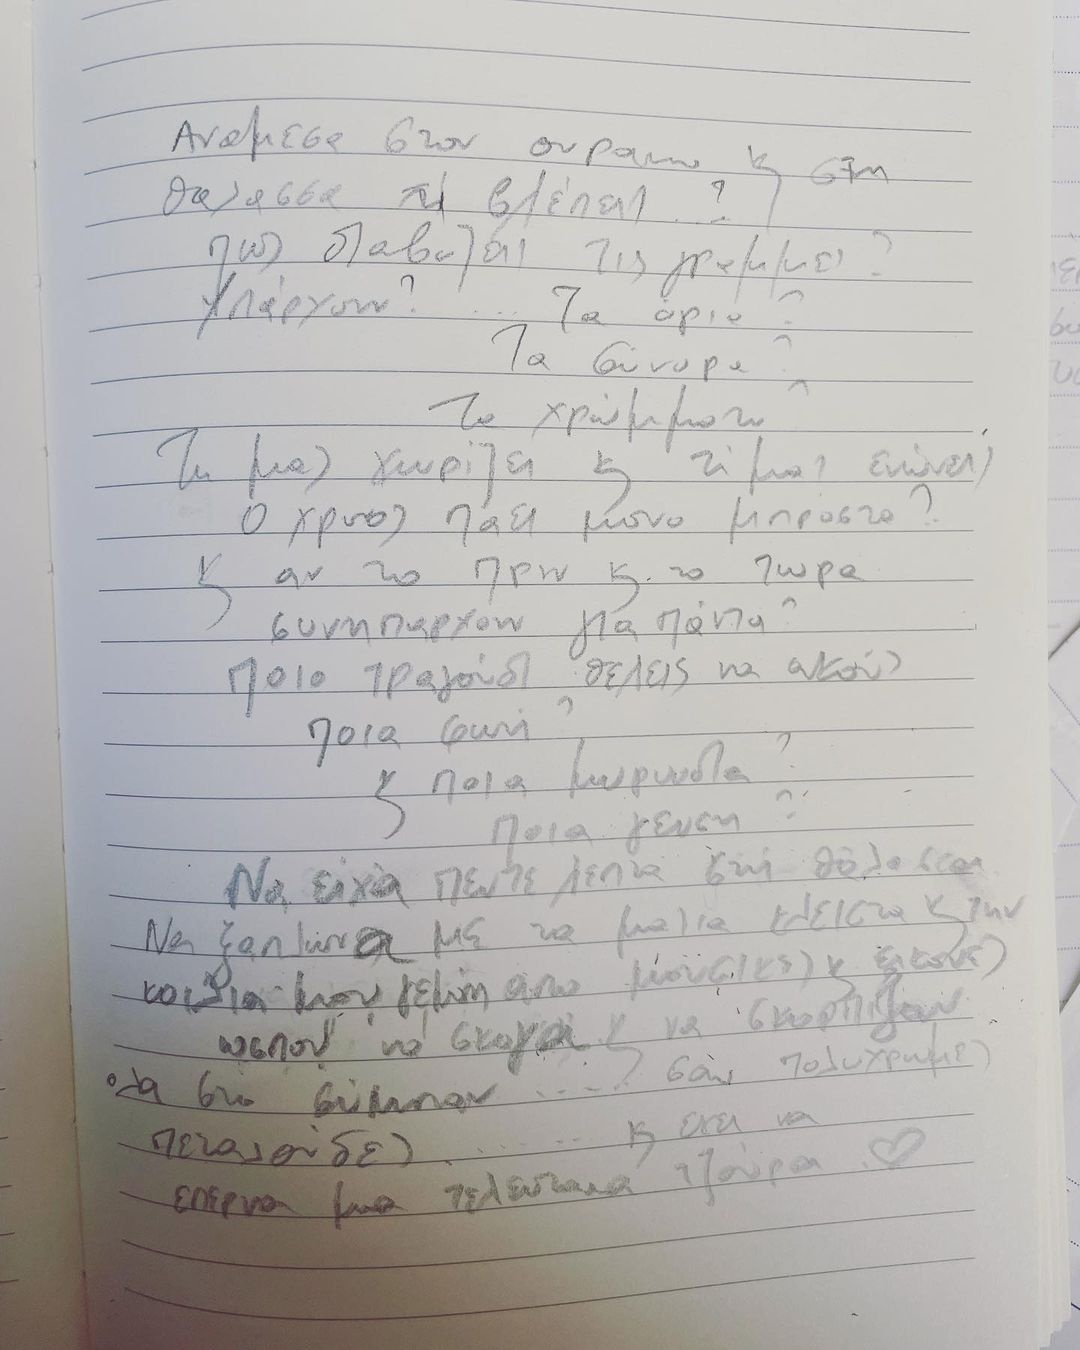 Αναμεσα στον ουρανο κ στη
θαλασσα τί βλέπεις ?
πως διαβαζεις τις γραμμες?
Υπάρχουν? ... Τα όρια?
Τα σύνορα?
Τα χρώμματα?
Τι μας χωρίζει κ τί μας ενώνει;
Ο χρονος πάει μονο μπροστα?
κ αν το πριν κ το τωρα
συνηπαρχουν για πάντα?
Ποιο τραγούδι θελεις να ακούς
Ποια φωνή?
κ ποια μυρωδια?
ποια γευση?
Να ειχα πεντε λεπτα στη θάλασσα
Να ξαπλωνα με τα ματια κλειστα κ την
κοιλια μου γεμάτη απο μουσικες κ εικονές
ωσπου να σκαγα κ να σκορπιζαν
ολα στο σύμπαν ..... σαν πολυχρωμες
πεταλούδες ...... κ εκει να
επερνα μια τελευταια τζούρα